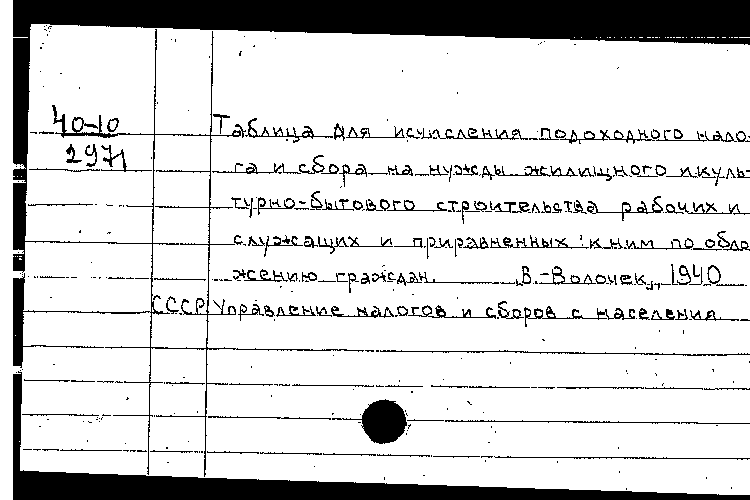 40-10
2971
Таблица для исчисления подоходного нало-
га и сбора на нужды жилищного и куль-
турно-бытового строительства рабочих и
служащих и приравненных к ним по обло-
жению граждан. В.-Волочек, 1940
СССР Управление налогов и сборов с населения